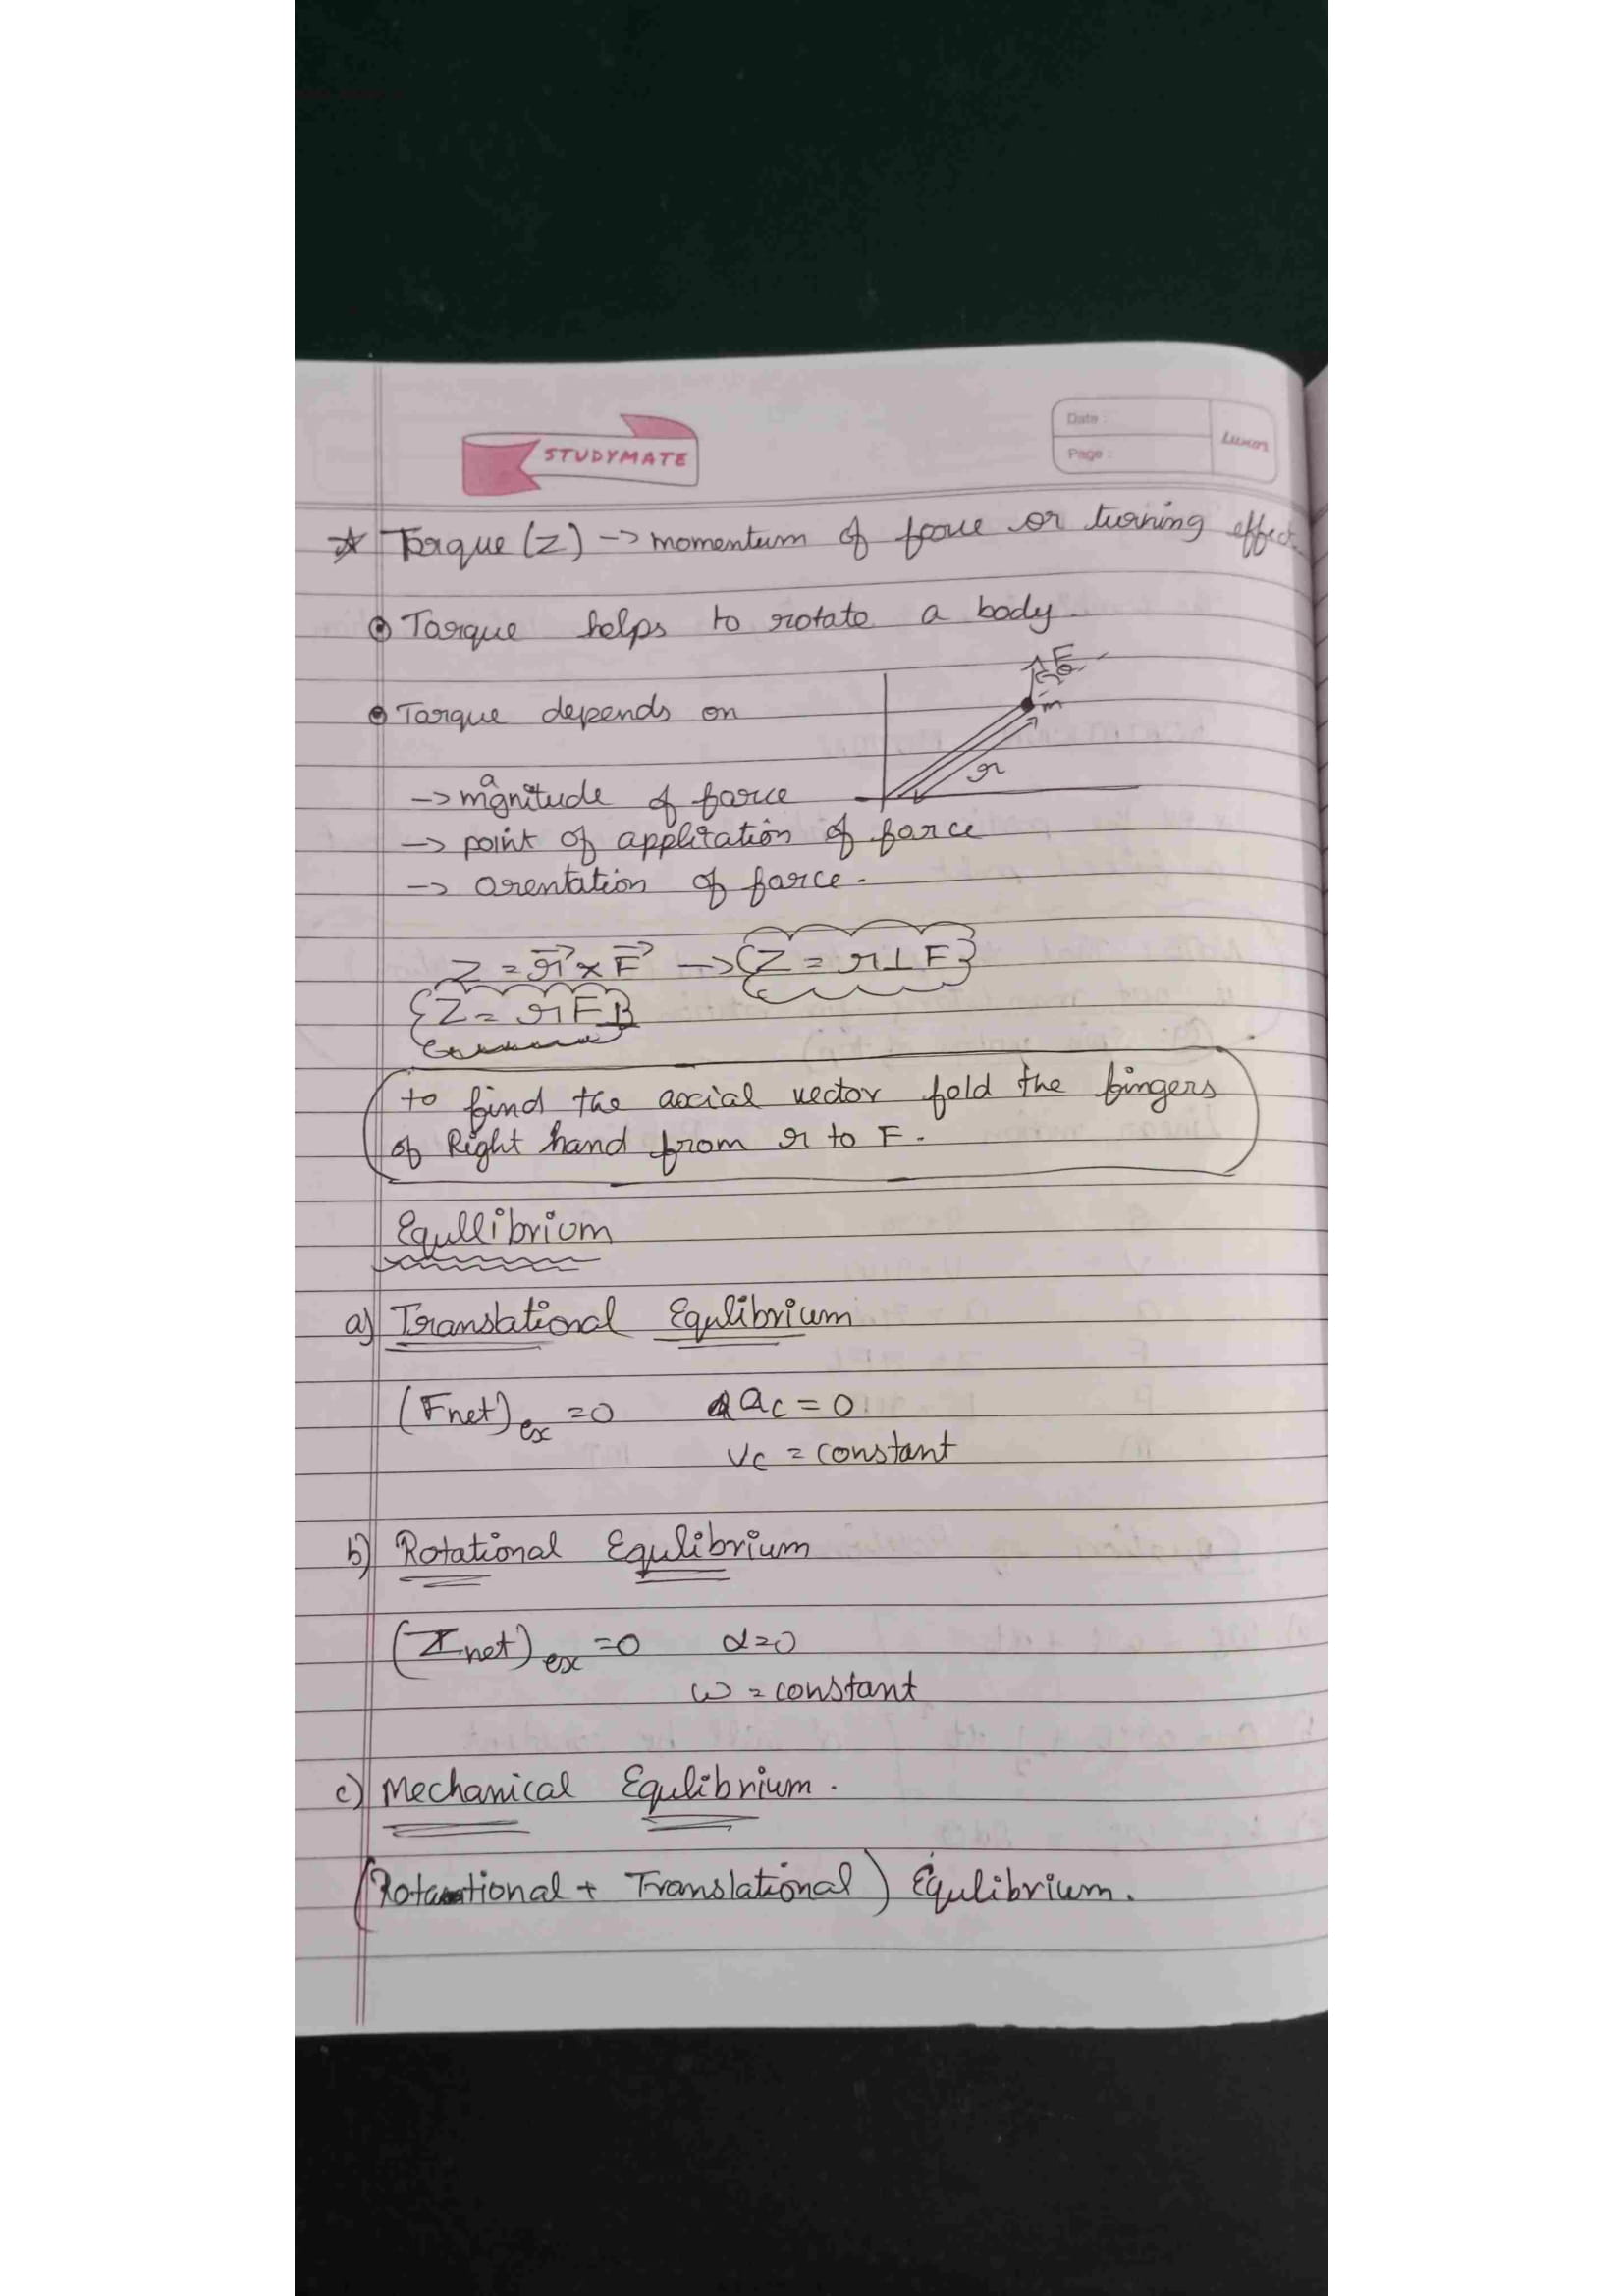 STUDYMATE
Date :
Page :
Luxor
☆ Torque (Z) -> momentum of force or turning effect.
Torque helps to rotate a body.
F
θ
Torque depends on
m
r
-> magnitude of force
-> point of application of force
-> orentation of force.
Z = r⃗ × F⃗ -> {Z = r⊥F}
{Z = rF⊥}
to find the axial vector fold the fingers
of Right hand from r to F.
Equllibrium
a) Translational Equlibrium
(Fnet)ex = 0 ac = 0
vc = constant
b) Rotational Equlibrium
(Znet)ex = 0 α = 0
ω = constant
c) Mechanical Equlibrium.
(Rotational + Translational) Equlibrium.